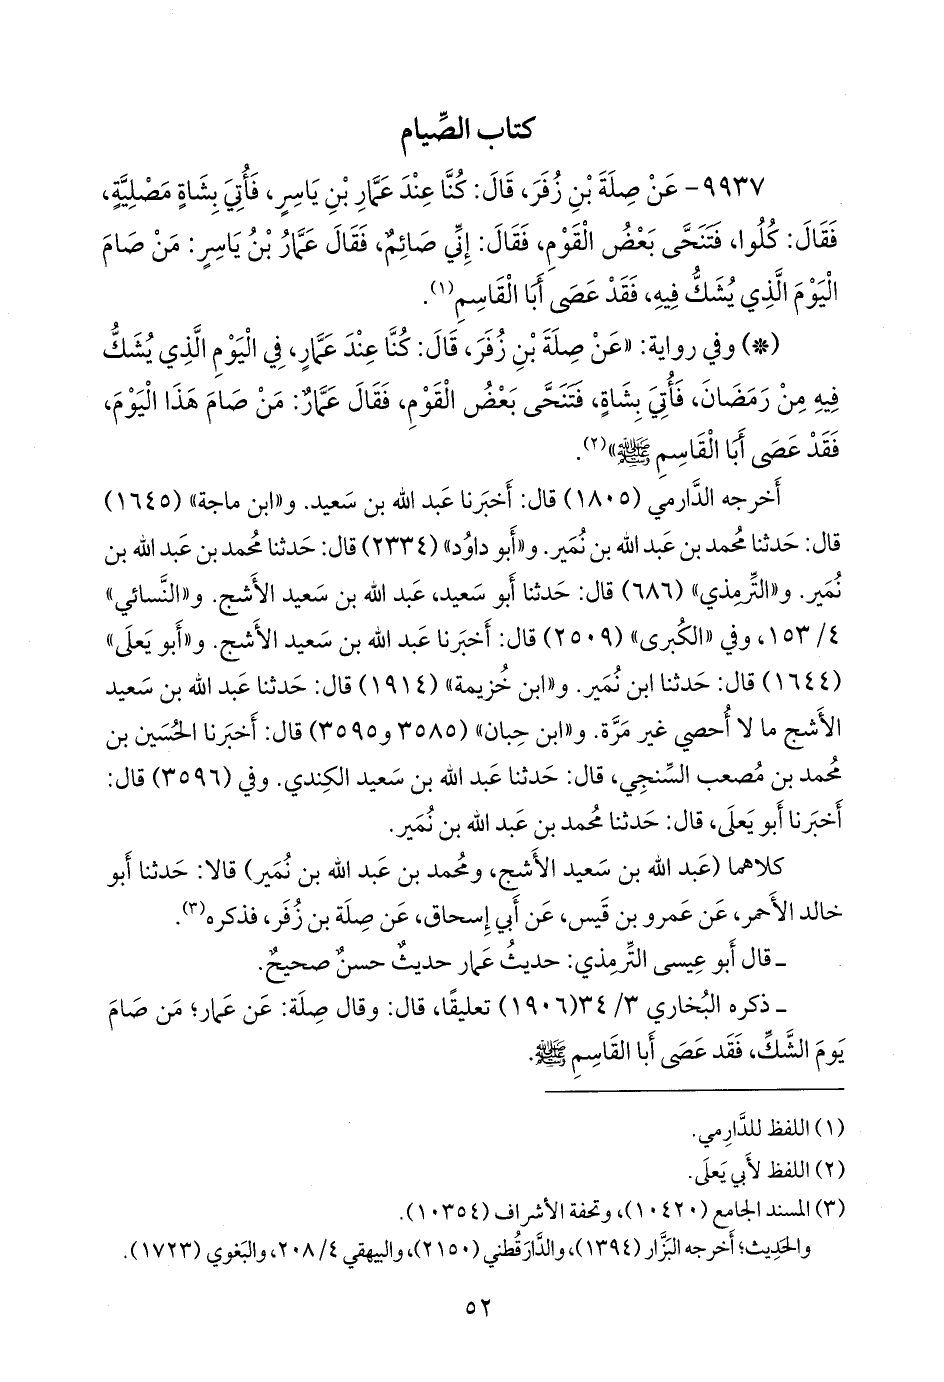 كتاب الصِّيام
٩٩٣٧- عَنْ صِلَةَ بْنِ زُفَرَ، قَالَ: كُنَّا عِنْدَ عَمَّارِ بْنِ يَاسِرٍ، فَأُتِيَ بِشَاةٍ مَصْلِيَّةٍ،
فَقَالَ: كُلُوا، فَتَنَحَّى بَعْضُ الْقَوْمِ، فَقَالَ: إِنِّي صَائِمٌ، فَقَالَ عَمَّارُ بْنُ يَاسِرٍ: مَنْ صَامَ
الْيَوْمَ الَّذِي يُشَكُّ فِيهِ، فَقَدْ عَصَى أَبَا الْقَاسِمِ(١).
(*) وفي رواية: «عَنْ صِلَةَ بْنِ زُفَرَ، قَالَ: كُنَّا عِنْدَ عَمَّارٍ، فِي الْيَوْمِ الَّذِي يُشَكُّ
فِيهِ مِنْ رَمَضَانَ، فَأُتِيَ بِشَاةٍ، فَتَنَحَّى بَعْضُ الْقَوْمِ، فَقَالَ عَمَّارٌ: مَنْ صَامَ هَذَا الْيَوْمَ،
فَقَدْ عَصَى أَبَا الْقَاسِمِ ﷺ»(٢).
أَخرجه الدَّارمي (١٨٠٥) قال: أَخبَرنا عَبد الله بن سَعيد. و«ابن ماجة» (١٦٤٥)
قال: حَدثنا مُحمد بن عَبد الله بن نُمَير. و«أَبو داوُد» (٢٣٣٤) قال: حَدثنا مُحمد بن عَبد الله بن
نُمَير. و«التِّرمِذي» (٦٨٦) قال: حَدثنا أَبو سَعيد، عَبد الله بن سَعيد الأَشج. و«النَّسائي»
٤/ ١٥٣، وفي «الكُبرى» (٢٥٠٩) قال: أَخبَرنا عَبد الله بن سَعيد الأَشج. و«أَبو يَعلى»
(١٦٤٤) قال: حَدثنا ابن نُمَير. و«ابن خُزيمة» (١٩١٤) قال: حَدثنا عَبد الله بن سَعيد
الأَشج ما لا أُحصي غير مَرَّة. و«ابن حِبان» (٣٥٨٥ و٣٥٩٥) قال: أَخبَرنا الحُسَين بن
مُحمد بن مُصعب السِّنجي، قال: حَدثنا عَبد الله بن سَعيد الكِندي. وفي (٣٥٩٦) قال:
أَخبَرنا أَبو يَعلَى، قال: حَدثنا مُحمد بن عَبد الله بن نُمَير.
كلاهما (عَبد الله بن سَعيد الأَشج، ومُحمد بن عَبد الله بن نُمَير) قالا: حَدثنا أَبو
خالد الأَحمر، عَن عَمرو بن قَيس، عَن أَبي إِسحاق، عَن صِلَة بن زُفَر، فذكره(٣).
ـ قال أَبو عِيسى التِّرمِذي: حديثُ عَمار حديثٌ حسنٌ صحيحٌ.
ـ ذكره البُخاري ٣/ ٣٤(١٩٠٦) تعليقًا، قال: وقال صِلَة: عَن عَمار؛ مَن صَامَ
يَومَ الشَّكِّ، فَقَد عَصَى أَبا القَاسِمِ ﷺ.
(١) اللفظ للدَّارِمي.
(٢) اللفظ لأَبي يَعلَى.
(٣) المسند الجامع (١٠٤٢٠)، وتحفة الأشراف (١٠٣٥٤).
والحَدِيث؛ أَخرجه البَزَّار (١٣٩٤)، والدَّارَقُطني (٢١٥٠)، والبيهقي ٤/ ٢٠٨، والبَغوي (١٧٢٣).
٥٢